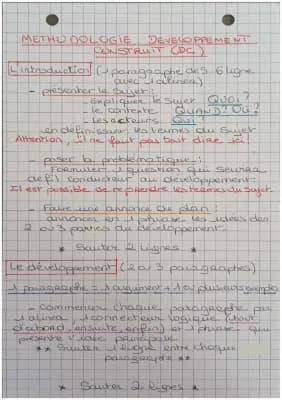 METHODOLOGIE DEVELOPPEMENT
CONSTRUIT (DC)
L'introduction (1 paragraphe de 5 6 ligne
avec 1 alinéa)
- présenter le sujet :
- expliquer le sujet QUOI ?
- le contexte QUAND ? OÙ ?
- les acteurs QUI ?
- en définissant les termes du sujet
Attention, il ne faut pas tout dire ici !
- poser la problématique :
Formuler 1 question qui servira
de fil conducteur au développement
Il est possible de reprendre les termes du sujet.
- Faire une annonce du plan :
annoncer en 1 phrase les idées des
2 ou 3 parties du développement.
* Sauter 2 lignes *
Le développement (2 ou 3 paragraphes)
1 paragraphe = 1 argument + 1 ou plusieurs exemples
- Commencer chaque paragraphe par
1 alinéa, 1 connecteur logique (tout
d'abord, ensuite, enfin) et 1 phrase qui
présente l'idée principale
** Sauter 1 ligne entre chaque
paragraphe **
* Sauter 2 lignes *